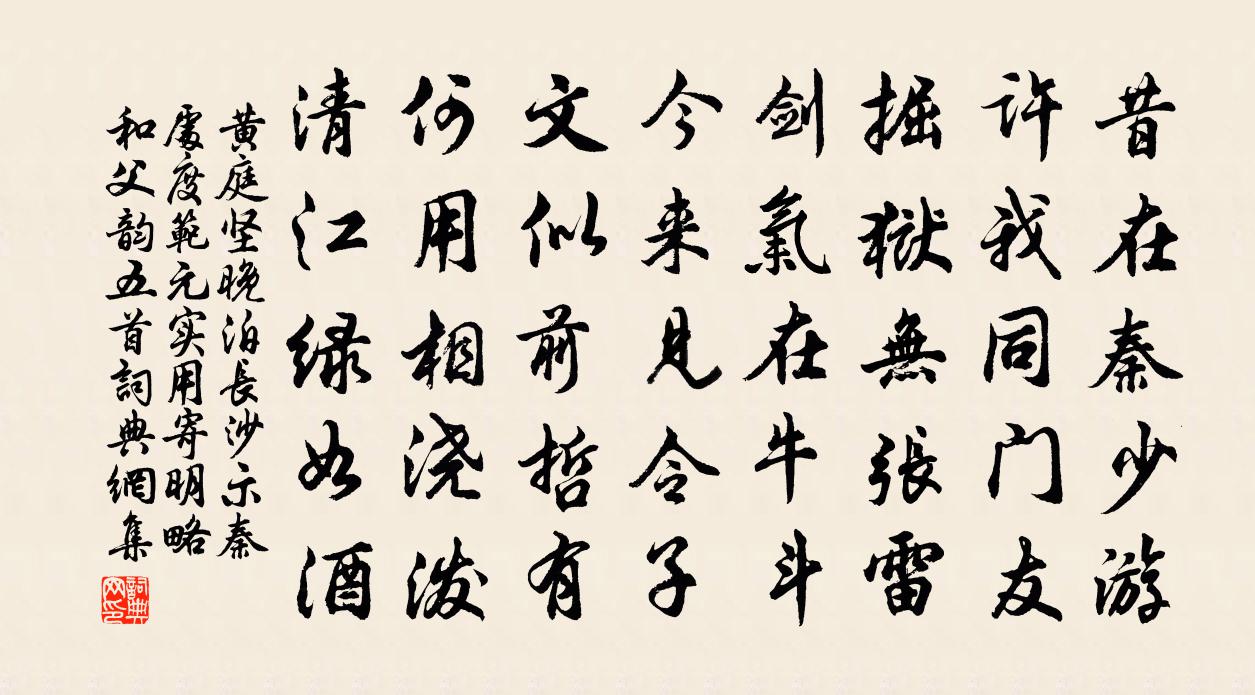 昔在秦少游
许我同门友
掘獄無張雷
剑氣在牛斗
今来見令子
文似前哲有
何用相浇泼
清江绿如酒
黄庭坚晚泊長沙示秦
處度範元实用寄明略
和父韵五首詞典網集
詞典网印